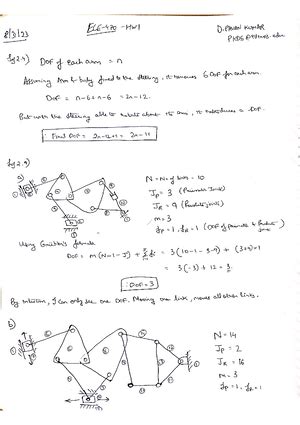 8/3/23
ECE-470 - HW1
D. PAVAN KUMAR
fig 2.4)
DOF of each arm = n
Assuming Arm to body fixed to the steering, it removes 6 DOF for each arm.
DOF = n-6+n-6 = 2n-12.
But with the steering able to rotate about its axis, it introduces 1 DOF.
∴ Final DOF = 2n-12+1 = 2n-11
fig 2.9)
a)
N = No of links = 10
Jp = 3 (Prismatic Joints)
JR = 9 (Revolute Joints)
m = 3
fp = 1, fR = 1 (DOF of prismatic & revolute joints
Using Grubler's formula
DOF = m(N-1-J) + Σfi = 3(10-1-3-9) + (3+9)×1
= 3(-3) + 12 = 3
∴ DOF = 3
By Intuition, I can only see one DOF. Moving one link, moves all other links.
b)
N = 14
Jp = 2
JR = 16
m = 3
fp = 1, fR = 1